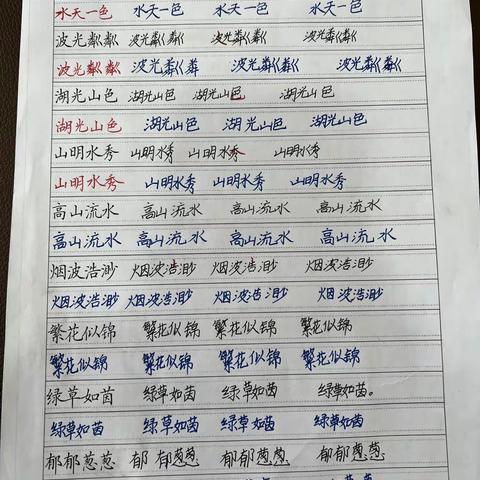 水天一色 水天一色 水天一色 水天一色
波光粼粼 波光粼粼 波光粼粼 波光粼粼
波光粼粼 波光粼粼 波光粼粼 波光粼粼
湖光山色 湖光山色 湖光山色 湖光山色
湖光山色 湖光山色 湖光山色 湖光山色
山明水秀 山明水秀 山明水秀 山明水秀
山明水秀 山明水秀 山明水秀 山明水秀
高山流水 高山流水 高山流水 高山流水
高山流水 高山流水 高山流水 高山流水
烟波浩渺 烟波浩渺 烟波浩渺 烟波浩渺
烟波浩渺 烟波浩渺 烟波浩渺 烟波浩渺
繁花似锦 繁花似锦 繁花似锦 繁花似锦
繁花似锦 繁花似锦 繁花似锦 繁花似锦
绿草如茵 绿草如茵 绿草如茵 绿草如茵。
绿草如茵 绿草如茵 绿草如茵 绿草如茵
郁郁葱葱 郁郁葱葱 郁郁葱葱 郁郁葱葱